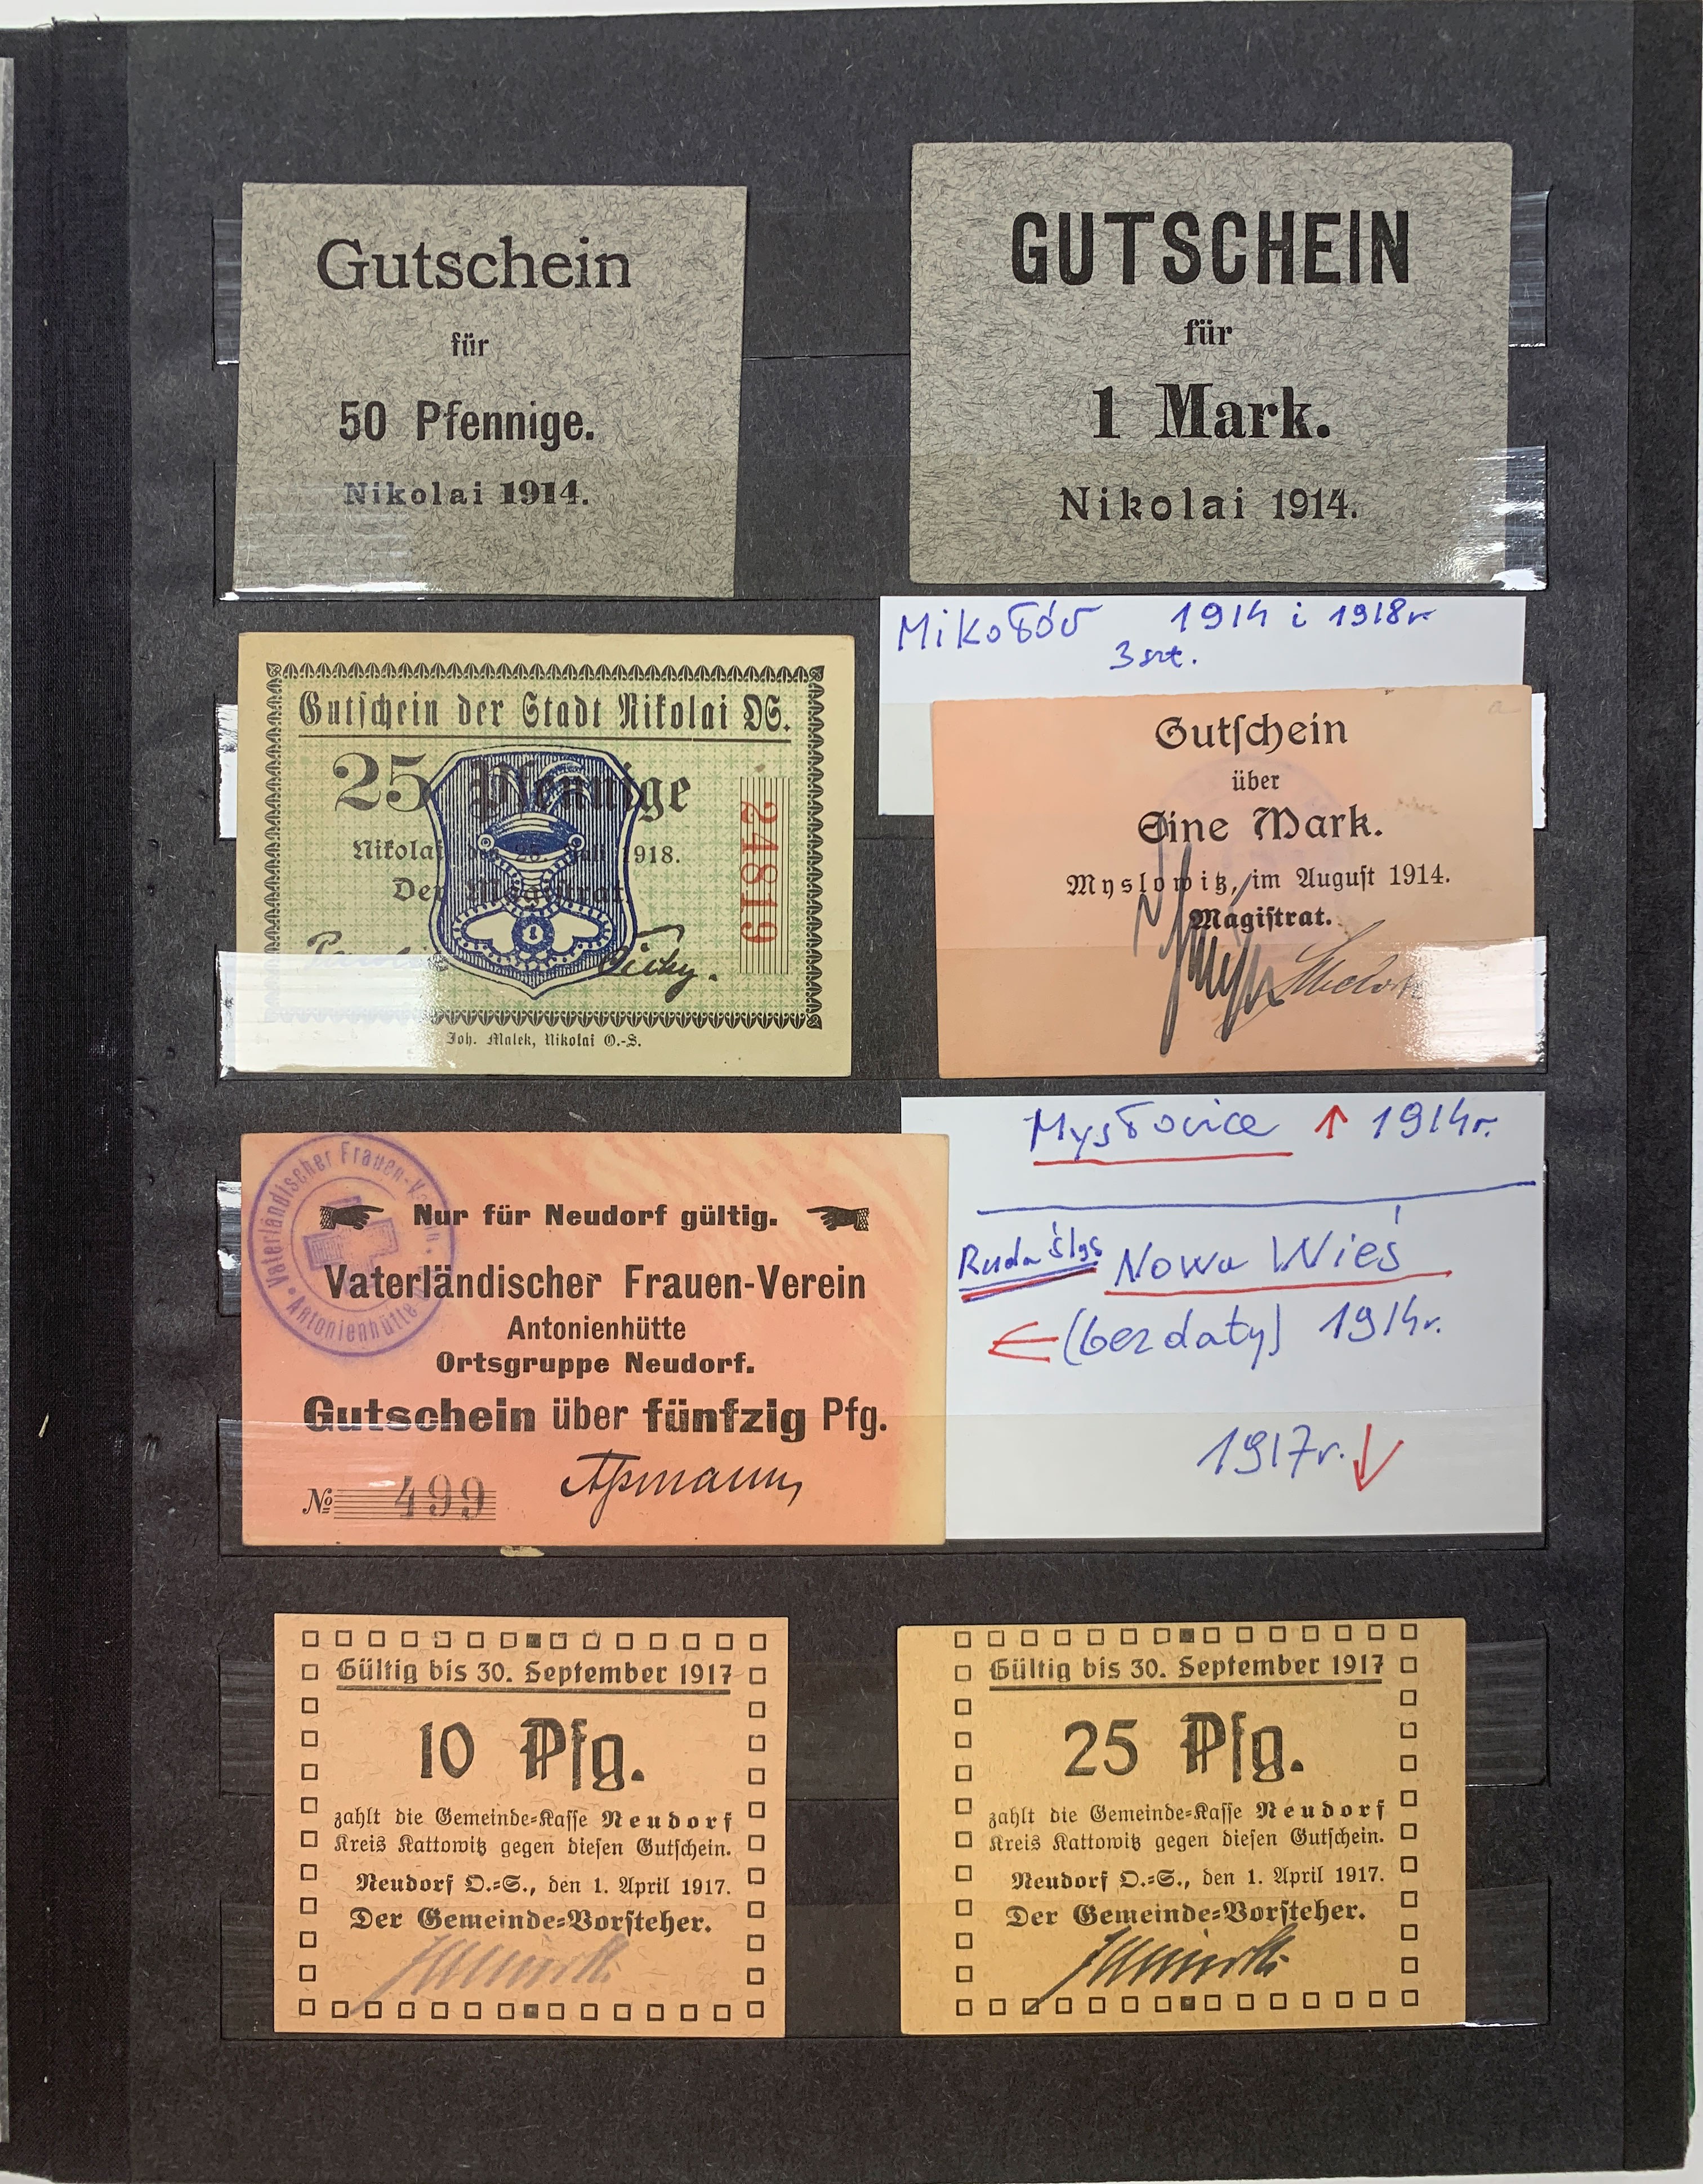 Gutschein
für
50 Pfennige.
Nikolai 1914.
GUTSCHEIN
für
1 Mark.
Nikolai 1914.
Mikołów 1914 i 1918r
3 szt.
Gutschein der Stadt Nikolai OS.
25 Pfennige
Nikolai 1918.
Der Magistrat
24819
Joh. Malek, Nikolai O.-S.
Gutschein
über
Eine Mark.
Myslowitz, im August 1914.
Magistrat.
Mysłowice ↑ 1914r.
Ruda Śląs Nowa Wieś
← (bez daty) 1914r.
1917r. ↓
Vaterländischer Frauen-
Antonienhütte
Nur für Neudorf gültig.
Vaterländischer Frauen-Verein
Antonienhütte
Ortsgruppe Neudorf.
Gutschein über fünfzig Pfg.
№ 499
Gültig bis 30. September 1917
10 Pfg.
zahlt die Gemeinde-Kasse Neudorf
Kreis Kattowitz gegen diesen Gutschein.
Neudorf O.-S., den 1. April 1917.
Der Gemeinde-Vorsteher.
Gültig bis 30. September 1917
25 Pfg.
zahlt die Gemeinde-Kasse Neudorf
Kreis Kattowitz gegen diesen Gutschein.
Neudorf O.-S., den 1. April 1917.
Der Gemeinde-Vorsteher.